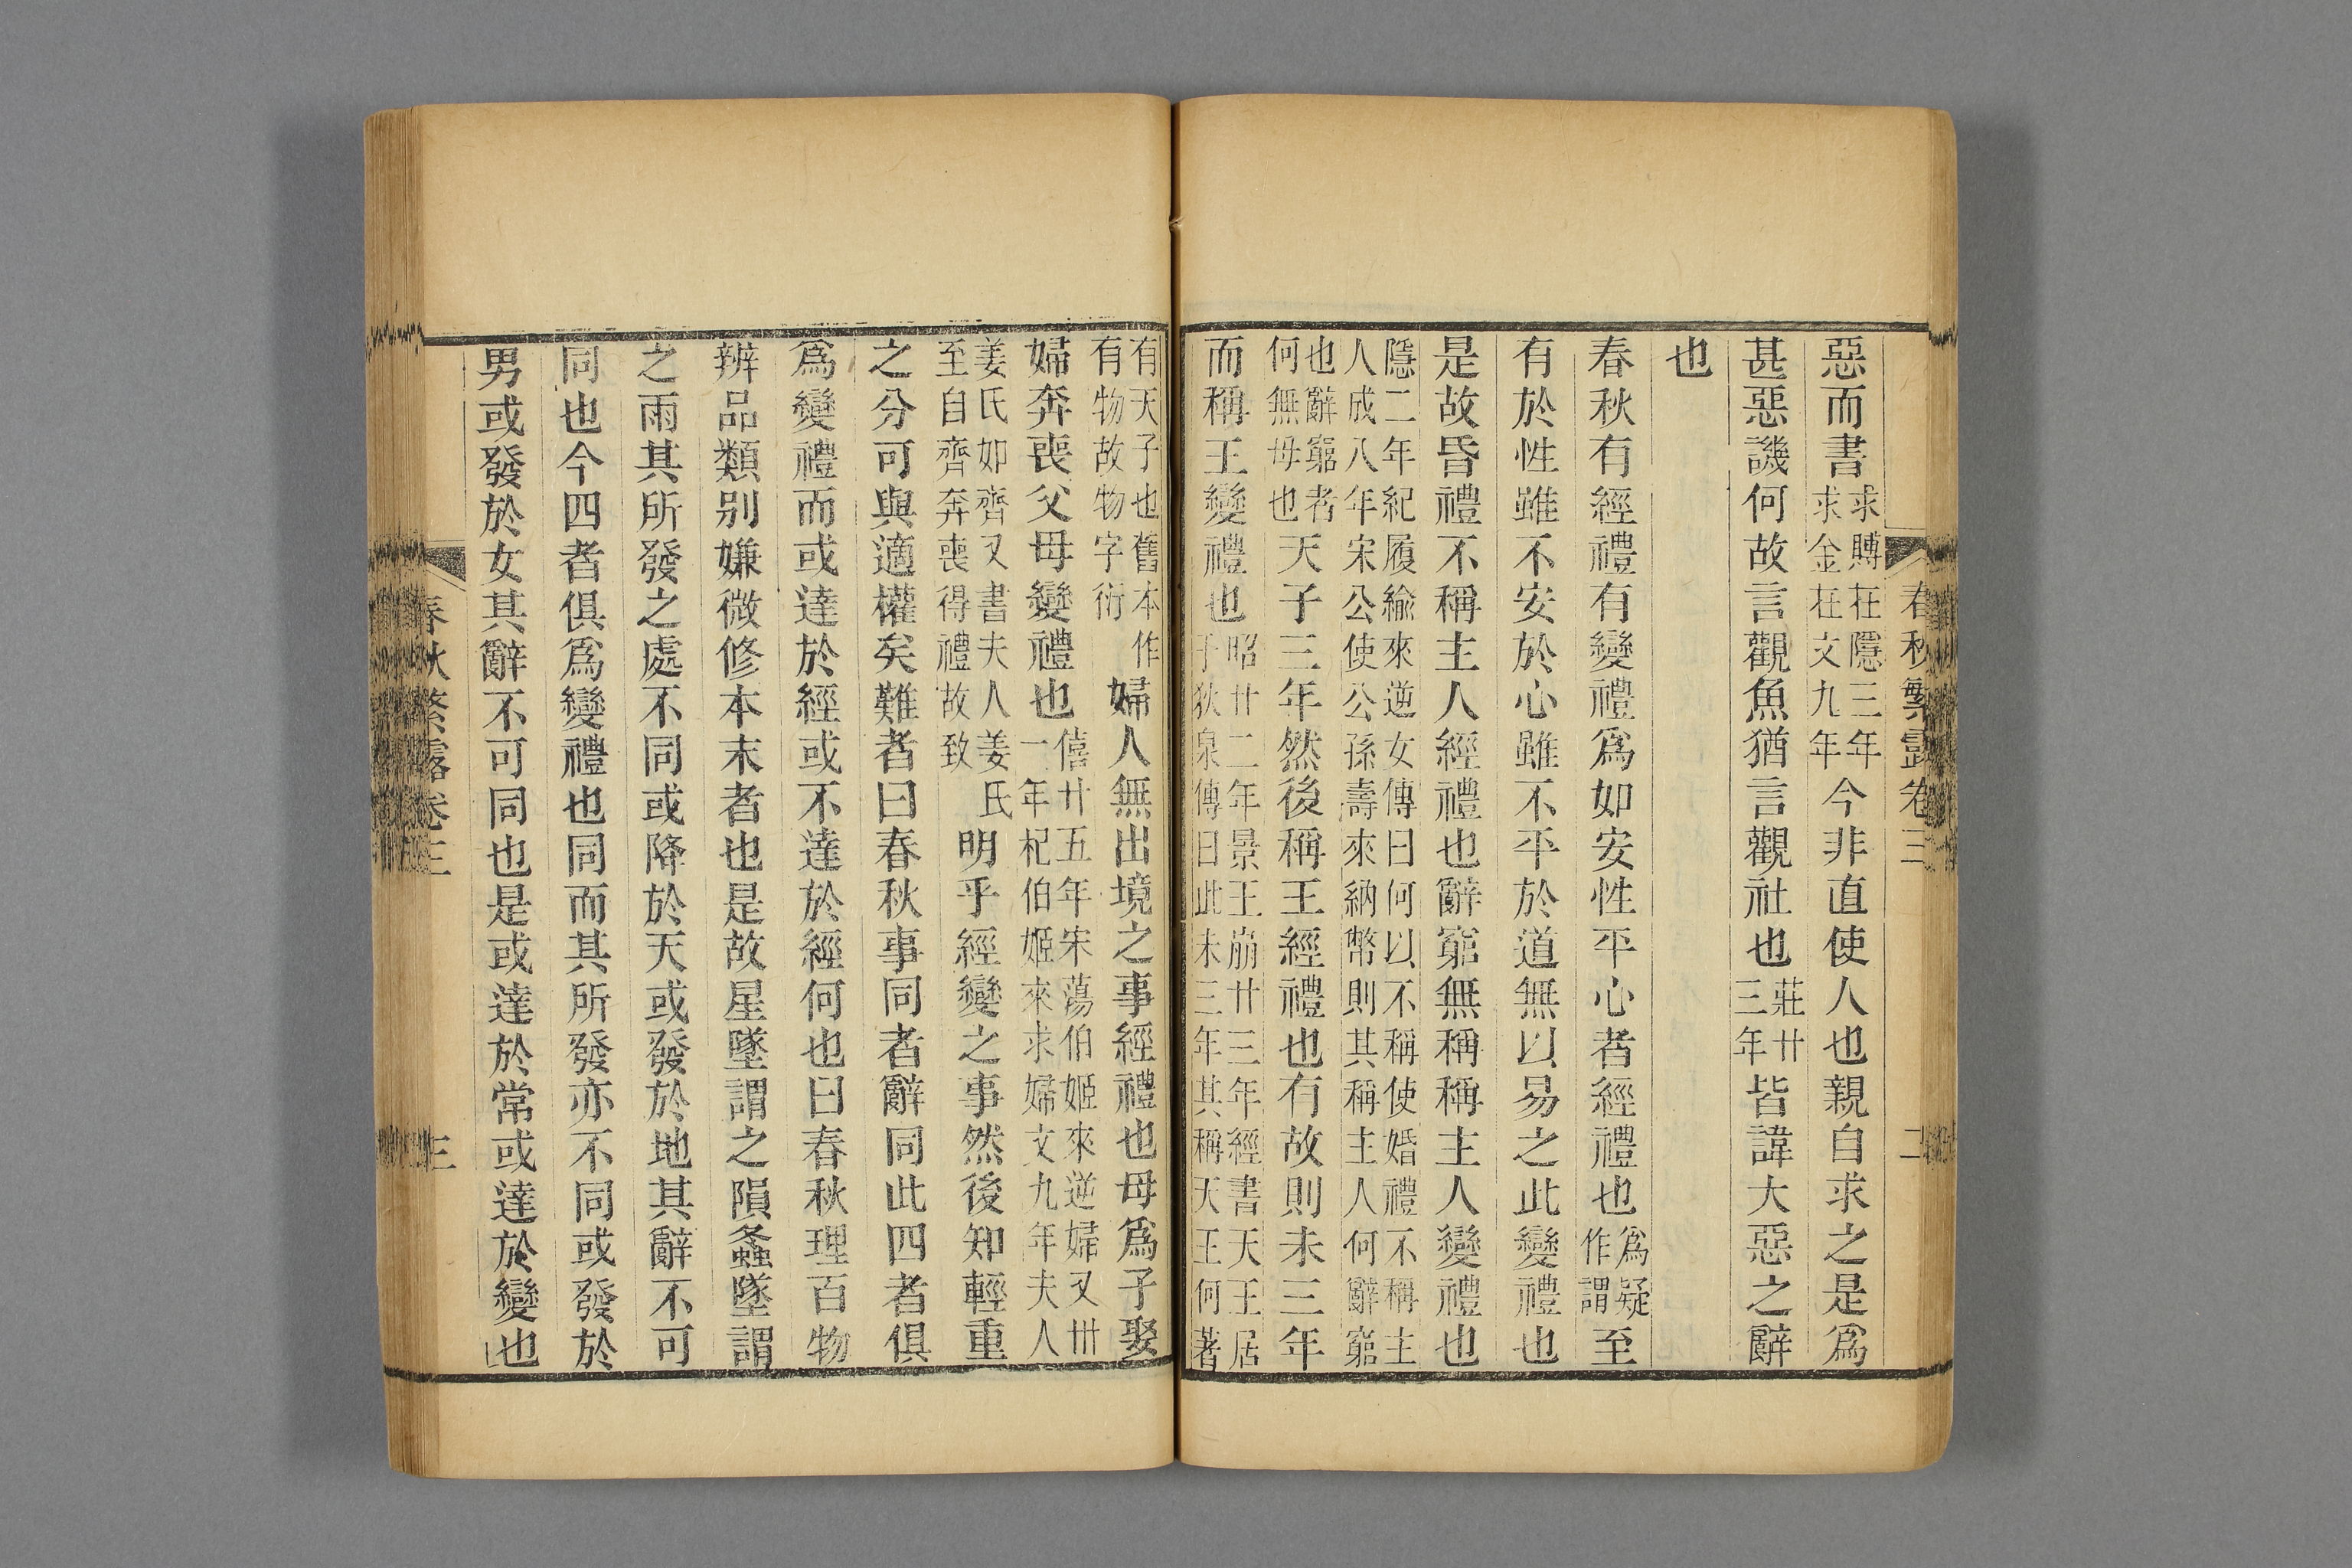 春秋繁露卷三
二
惡而書求賻在隱三年求金在文九年今非直使人也親自求之是爲
甚惡譏何故言觀魚猶言觀社也莊廿三年皆諱大惡之辭
也
春秋有經禮有變禮爲如安性平心者經禮也爲疑作謂至
有於性雖不安於心雖不平於道無以易之此變禮也
是故昏禮不稱主人經禮也辭窮無稱稱主人變禮也
隱二年紀履緰來逆女傳曰何以不稱使婚禮不稱主人成八年宋公使公孫壽來納幣則其稱主人何辭窮
也辭窮者何無母也天子三年然後稱王經禮也有故則未三年
而稱王變禮也昭廿二年景王崩廿三年經書天王居于狄泉傳曰此未三年其稱天王何著
有天子也舊本作有物故物字衍婦人無出境之事經禮也母爲子娶
婦奔喪父母變禮也僖廿五年宋蕩伯姬來逆婦又卅一年杞伯姬來求婦文九年夫人
姜氏如齊又書夫人姜氏至自齊奔喪得禮故致明乎經變之事然後知輕重
之分可與適權矣難者曰春秋事同者辭同此四者俱
爲變禮而或達於經或不達於經何也曰春秋理百物
辨品類别嫌微修本末者也是故星墜謂之隕螽墜謂
之雨其所發之處不同或降於天或發於地其辭不可
同也今四者俱爲變禮也同而其所發亦不同或發於
男或發於女其辭不可同也是或達於常或達於變也
春秋繁露卷三
三